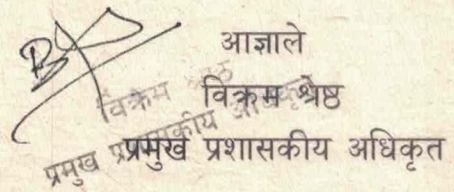 आज्ञाले
विक्रम श्रेष्ठ
प्रमुख प्रशासकीय अधिकृत
विक्रम श्रेष्ठ
प्रमुख प्रशासकीय अधिकृत